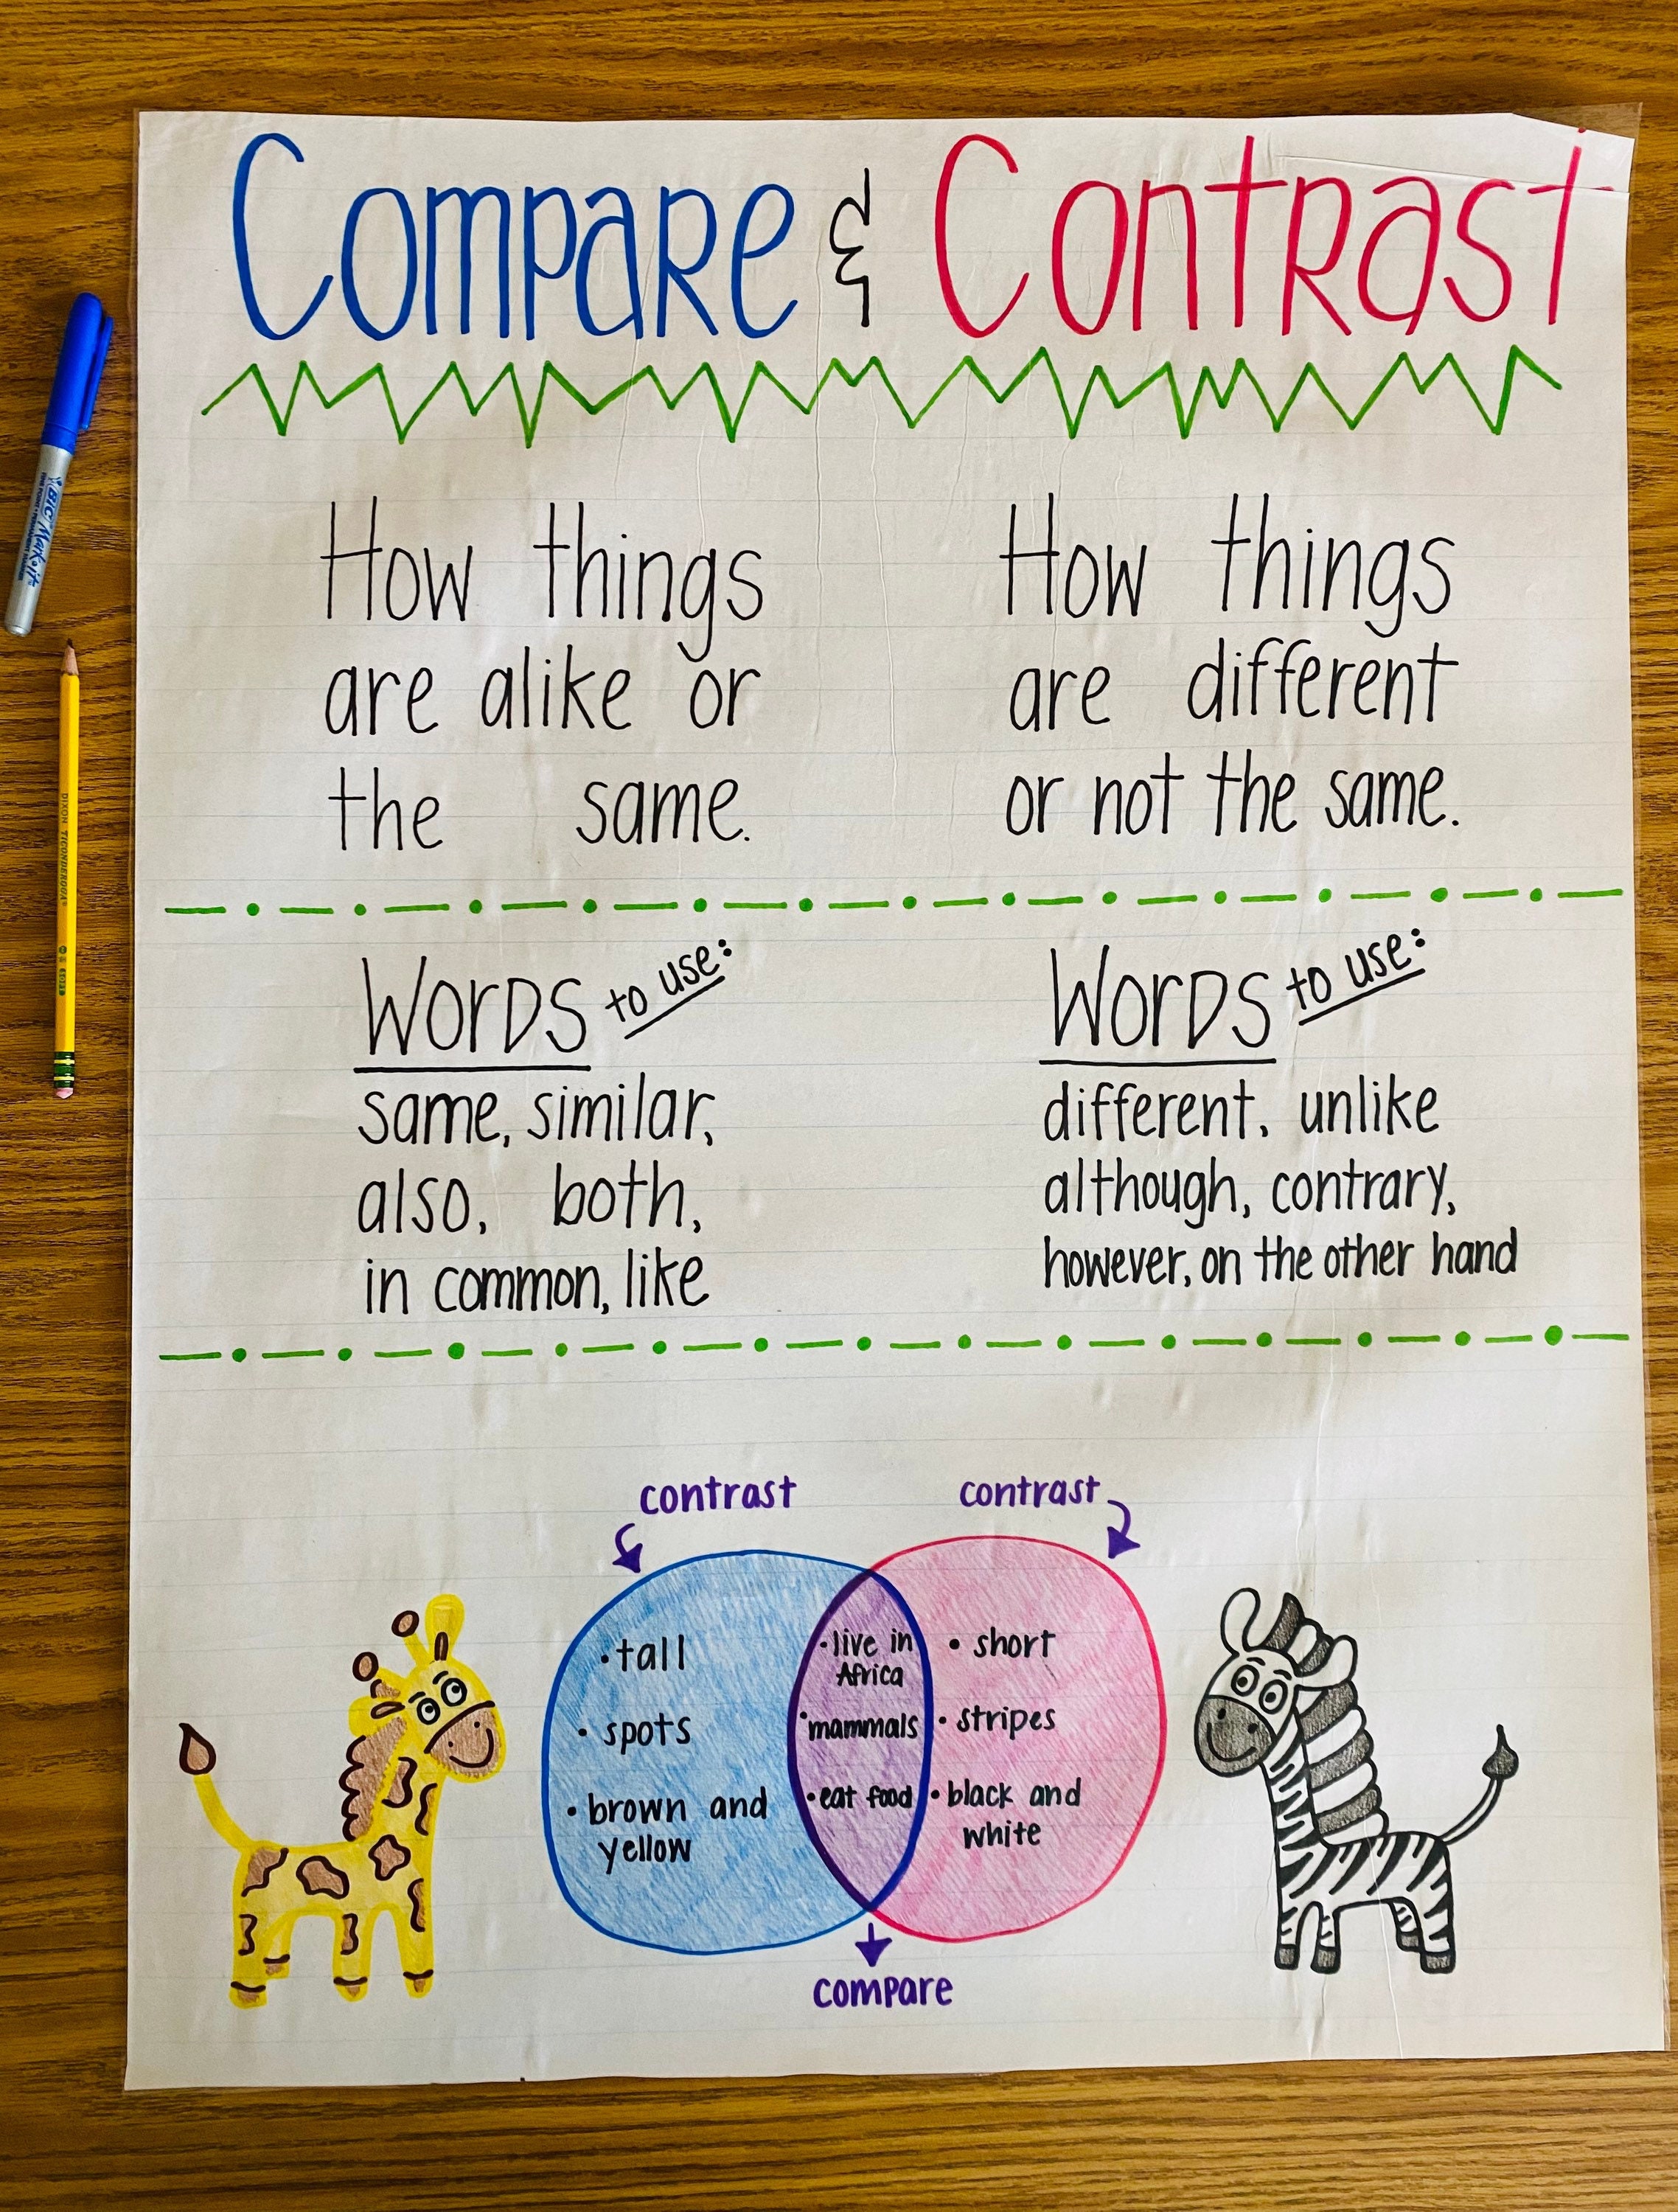 Compare & Contrast
How things
are alike or
the same.
How things
are different
or not the same.
Words to use:
same, similar,
also, both,
in common, like
Words to use:
different, unlike
although, contrary,
however, on the other hand
contrast
contrast
• tall
• spots
• brown and
yellow
• live in
Africa
• mammals
• eat food
• short
• stripes
• black and
white
compare
BIC Mark-it
DIXON TICONDEROGA